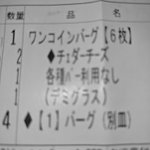 数量 品 名
1 ワンコインバーグ【6枚】
2 ◆チェダーチーズ
1 各種バー利用なし
1 (デミグラス)
4 ◆【1】バーグ (別皿)